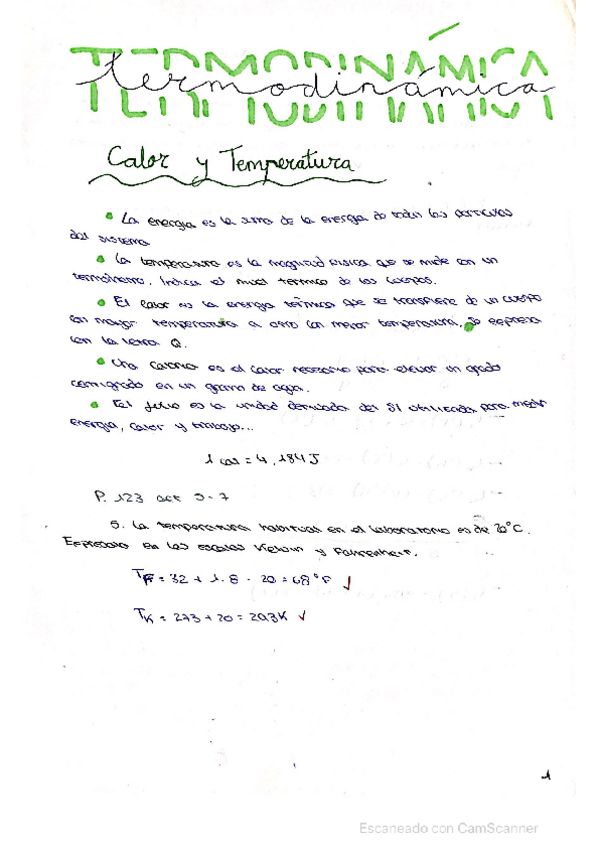 TERMODINÁMICA
termodinámica
Calor y Temperatura
• La energia es la suma de la energia de todas las particulas
del sistema
• La temperatura es la magnitud fisica que se mide con un
termometro. Indica el nivel termico de los cuerpos.
• El calor es la energia térmica que se transfiere de un cuerpo
con mayor temperatura a otro con menor temperatura, Se expresa
con la letra Q.
• Una caloria es el calor necesario para elevar un grado
centigrado en un gramo de agua.
• El julio es la unidad derivada del SI utilizada para medir
energia, calor y trabajo...
1 cal = 4,184 J
P. 123 act 5-7
5. La temperatura habitual en el laboratorio es de 20°C.
Expresala en las escalas Kelvin y Fahrenheit.
TF = 32 + 1.8 · 20 = 68°F ✓
TK = 273 + 20 = 293K ✓
1
Escaneado con CamScanner